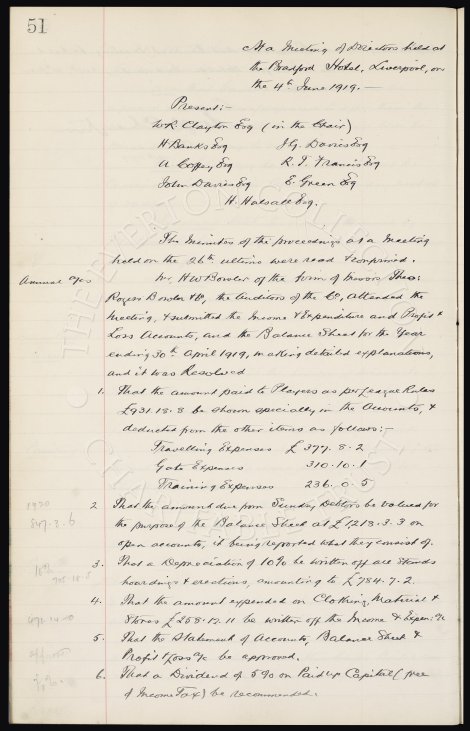 51
At a Meeting of Directors held at
the Bradford Hotel, Liverpool, on
the 4th June 1919. —
Present:-
W.R. Clayton Esq (in the Chair)
H Banks Esq J.G. Davies Esq
A Coffey Esq R.T. Francis Esq
John Davies Esq E. Green Esq
H. Halsall Esq.
The Minutes of the proceedings at a Meeting
held on the 26th ultimo were read & confirmed.
Annual a/cs
Mr. H W Bowler of the firm of Messrs Theo:
Rogers Bowler & Co, the Auditors of the Co, attended the
Meeting, & submitted the Income & Expenditure and Profit &
Loss Accounts, and the Balance Sheet for the Year
ending 30th April 1919, making detailed explanations,
and it was Resolved
1. That the amount paid to Players as per League Rules
£931.18.8 be shown specially in the Accounts, &
deducted from the other items as follows:-
Travelling Expenses £ 377.8.2
Gate Expenses 310.10.1
Training Expenses 236.0.5
1920
847.3.6
2 That the amount due from Sundry Debtors be valued for
the purpose of the Balance Sheet at £1213.3.3 on
open accounts, it being reported what they consist of.
3. That a Depreciation of 10% be written off all Stands
hoardings & erections, amounting to £784.7.2.
4. That the amount expended on Clothing, Material &
Stores £258.17.11 be written off the Income & Expen: a/c
5. That the Statement of Accounts, Balance Sheet &
Profit & Loss a/c be approved.
6. That a Dividend of 5% on Paid up Capital (free
of Income Tax) be recommended.